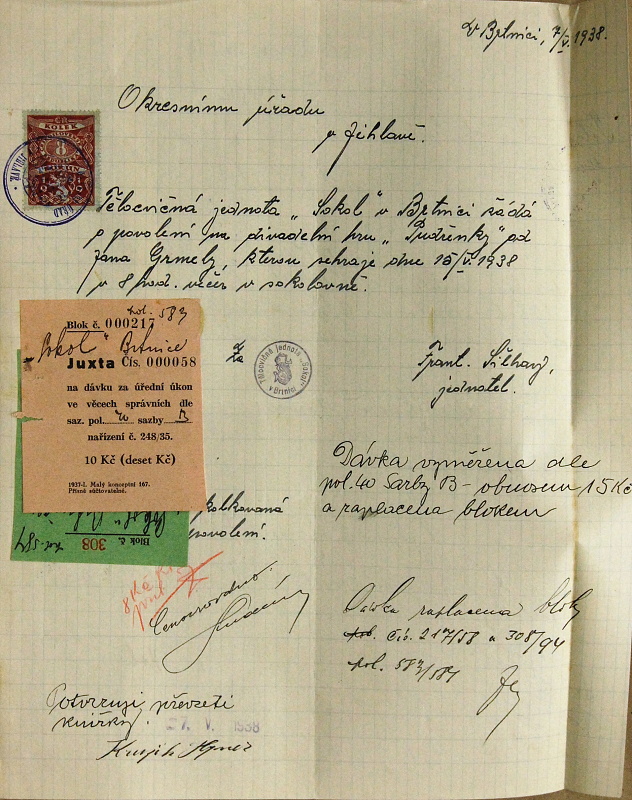 V Brtnici, 7/V. 1938.
Okresnímu úřadu
v Jihlavě.
KOLEK
8
Tělocvičná jednota „Sokol" v Brtnici žádá
o povolení na divadelní hru „Pudřenky" od
Jana Grmely, kterou sehraje dne 15/V. 1938
v 8 hod. večer v sokolovně.
pol. 583
Blok č. 000217
„Sokol" Brtnice
Juxta Čís. 000058
na dávku za úřední úkon
ve věcech správních dle
saz. pol. 40 sazby B
nařízení č. 248/35.
10 Kč (deset Kč)
1937-I. Malý konceptní 167.
Přísně súčtovatelné.
Za
Tělocvičná jednota „Sokol" v Brtnici
Frant. Šilhavý,
jednatel.
Dávka vyměřena dle
pol. 40 Sazby B - obnosem 15 Kč
a zaplacena blokem
kolkovaná
povolení.
Blok č. 308
pol. 584
8 Kč
Cenzurováno:
Dávka zaplacena bloky
čís. 217/58 a 308/94
pol. 583/584
Potvrzuji převzetí
knížky.
27. V. 1938